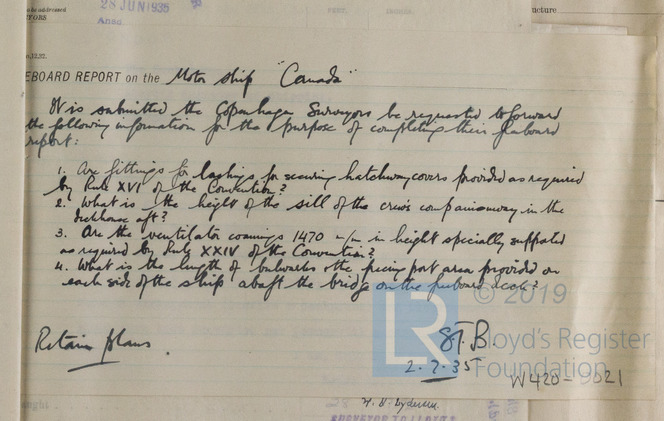 28 JUN 1935
ucture
EBOARD REPORT on the Motor ship "Canada"
It is submitted the Copenhagen Surveyors be requested to forward
the following information for the purpose of completing their freeboard
report:
1. Are fittings for lashings for securing hatchway covers provided as required
by Rule XVI of the Convention?
2. What is the height of the sill of the crew's companionway in the
deckhouse aft?
3. Are the ventilator coamings 1470 m/m in height specially supported
as required by Rule XXIV of the Convention?
4. What is the length of bulwarks & the freeing port area provided on
each side of the ship abaft the bridge on the freeboard deck?
© 2019
LR
Lloyd's Register
Foundation
Retain plans.
S.T.B.
2.7.35
W420-9021